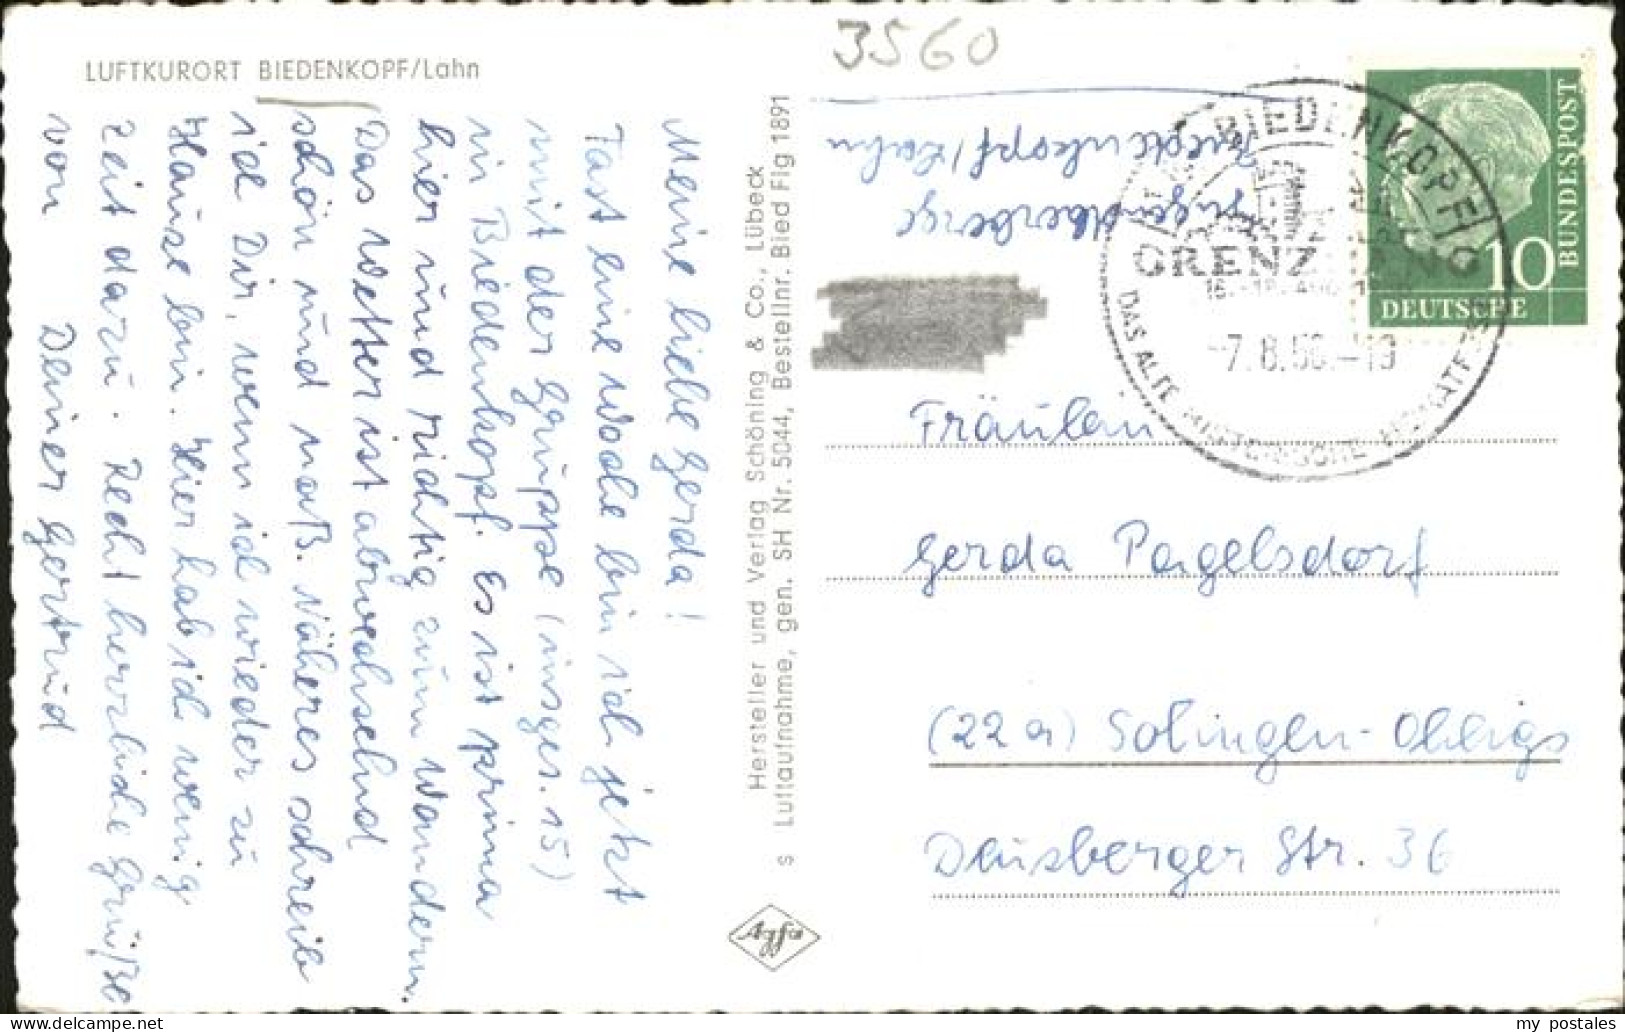 3560
LUFTKURORT BIEDENKOPF/Lahn
Meine liebe Gerda!
Fast eine Woche bin ich jetzt
mit der Gruppe (insges. 15)
in Biedenkopf. Es ist prima
hier und richtig zum Wandern.
Das Wetter ist abwechselnd
schön und naß. Näheres schreib
ich Dir, wenn ich wieder zu
Hause bin. Hier hab ich wenig
Zeit dazu. Recht herzliche Grüße
von Deiner Gertrud
Hersteller und Verlag Schöning & Co., Lübeck
s Luftaufnahme, gen. SH Nr. 5044, Bestellnr. Bied Flg 1891
Agfa
Jugendherberge
Biedenkopf/Lahn
BIEDENKOPF
GRENZ
-7.8.56.-19
DAS ALTE
10
DEUTSCHE
BUNDESPOST
Fräulein
Gerda Pagelsdorf
(22a) Solingen-Ohligs
Deusberger Str. 36
www.my_postales.com